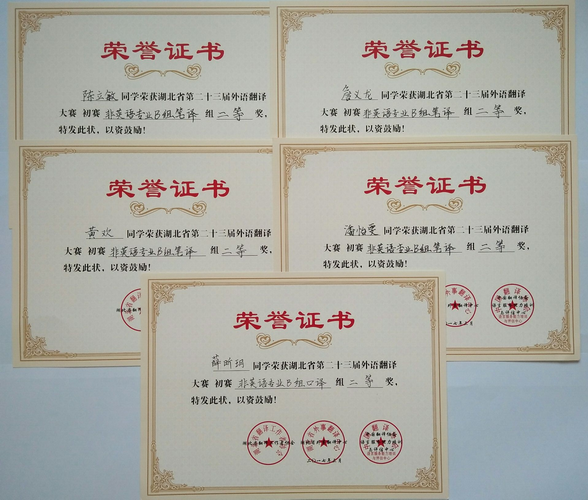 荣誉证书
陈立敏 同学荣获湖北省第二十三届外语翻译
大赛 初赛 非英语专业B组笔译 组 二等 奖，
特发此状，以资鼓励！
荣誉证书
詹义龙 同学荣获湖北省第二十三届外语翻译
大赛 初赛 非英语专业B组笔译 组 二等 奖，
特发此状，以资鼓励！
荣誉证书
黄欢 同学荣获湖北省第二十三届外语翻译
大赛 初赛 非英语专业B组笔译 组 二等 奖，
特发此状，以资鼓励！
荣誉证书
同学荣获湖北省第二十三届外语翻译
大赛 初赛 非英语专业B组笔译 组 二等 奖，
特发此状，以资鼓励！
荣誉证书
同学荣获湖北省第二十三届外语翻译
大赛 初赛 非英语专业B组口译 组 二等 奖，
特发此状，以资鼓励！